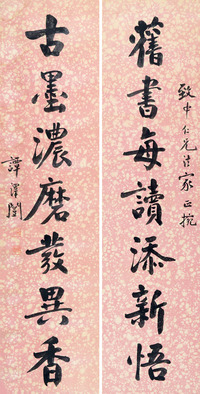 致中仁兄法家正捥
舊書每讀添新悟
古墨濃磨發異香
譚澤闓